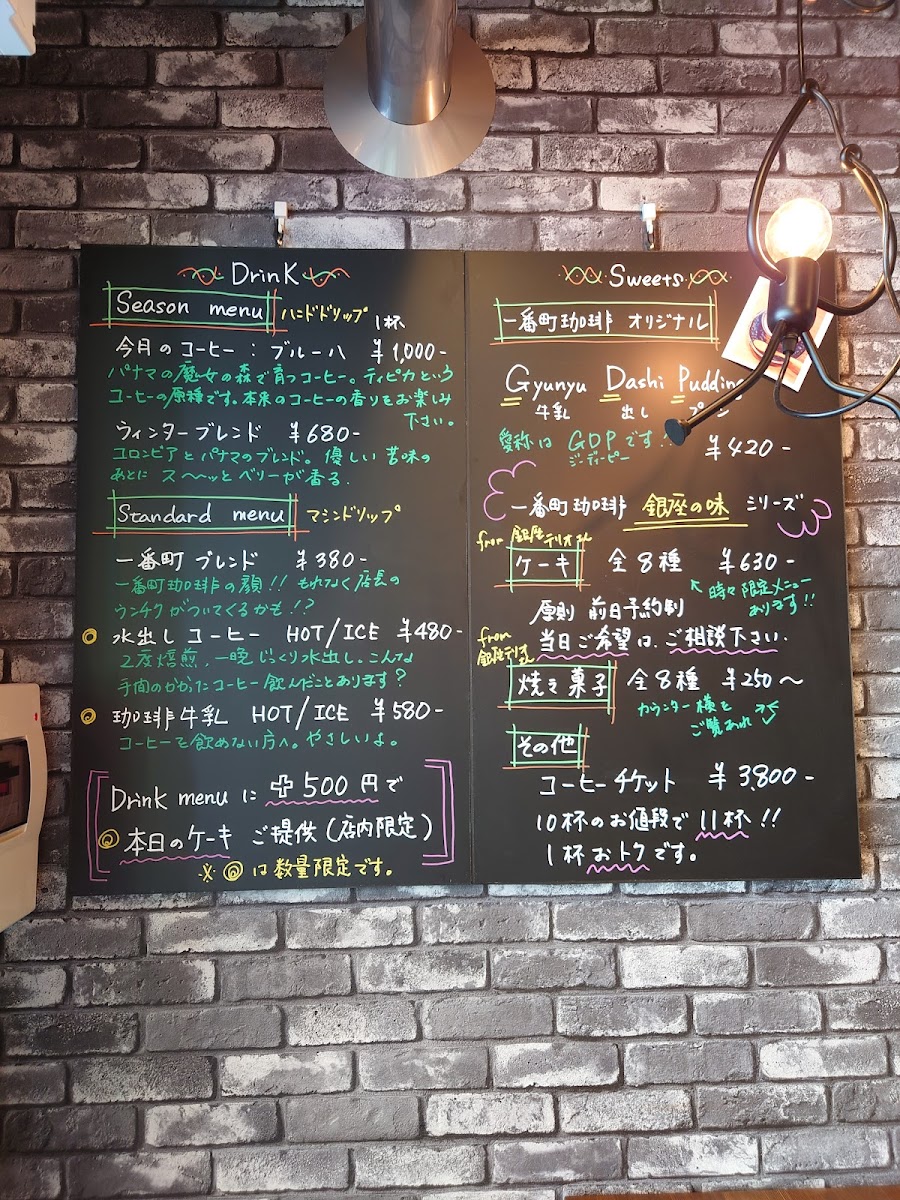 Drink
Season menu ハンドドリップ
1杯
今月のコーヒー：ブルーハ ¥1,000-
パナマの魔女の森で育つコーヒー。ティピカという
コーヒーの原種です。本来のコーヒーの香りをお楽しみ
下さい。
ウィンターブレンド ¥680-
コロンビアとパナマのブレンド。優しい苦味の
あとに ス〜〜ッとベリーが香る.
Standard menu マシンドリップ
一番町 ブレンド ¥380-
一番町珈琲の顔!! もれなく店長の
ウンチクがついてくるかも!?
◎ 水出し コーヒー HOT/ICE ¥480-
2度焙煎,一晩じっくり水出し。こんな
手間のかかったコーヒー飲んだことあります?
◎ 珈琲牛乳 HOT/ICE ¥580-
コーヒーを飲めない方へ。やさしいよ。
Drink menu に +500円で
◎ 本日のケーキ ご提供(店内限定)
※ ◎ は数量限定です。
Sweets
一番町珈琲 オリジナル
Gyunyu Dashi Pudding
牛乳 出し プリン
愛称は GDPです!!
ジーディーピー
¥420-
一番町珈琲 銀座の味 シリーズ
from 銀座テリオさん
ケーキ 全8種 ¥630-
↖時々限定メニュー
あります!!
原則 前日予約制
当日ご希望は、ご相談下さい.
from
銀座テリオさん
焼き菓子 全8種 ¥250〜
カウンター横を
ご覧あれ
その他
コーヒーチケット ¥3,800-
10杯のお値段で 11杯!!
1杯おトクです。